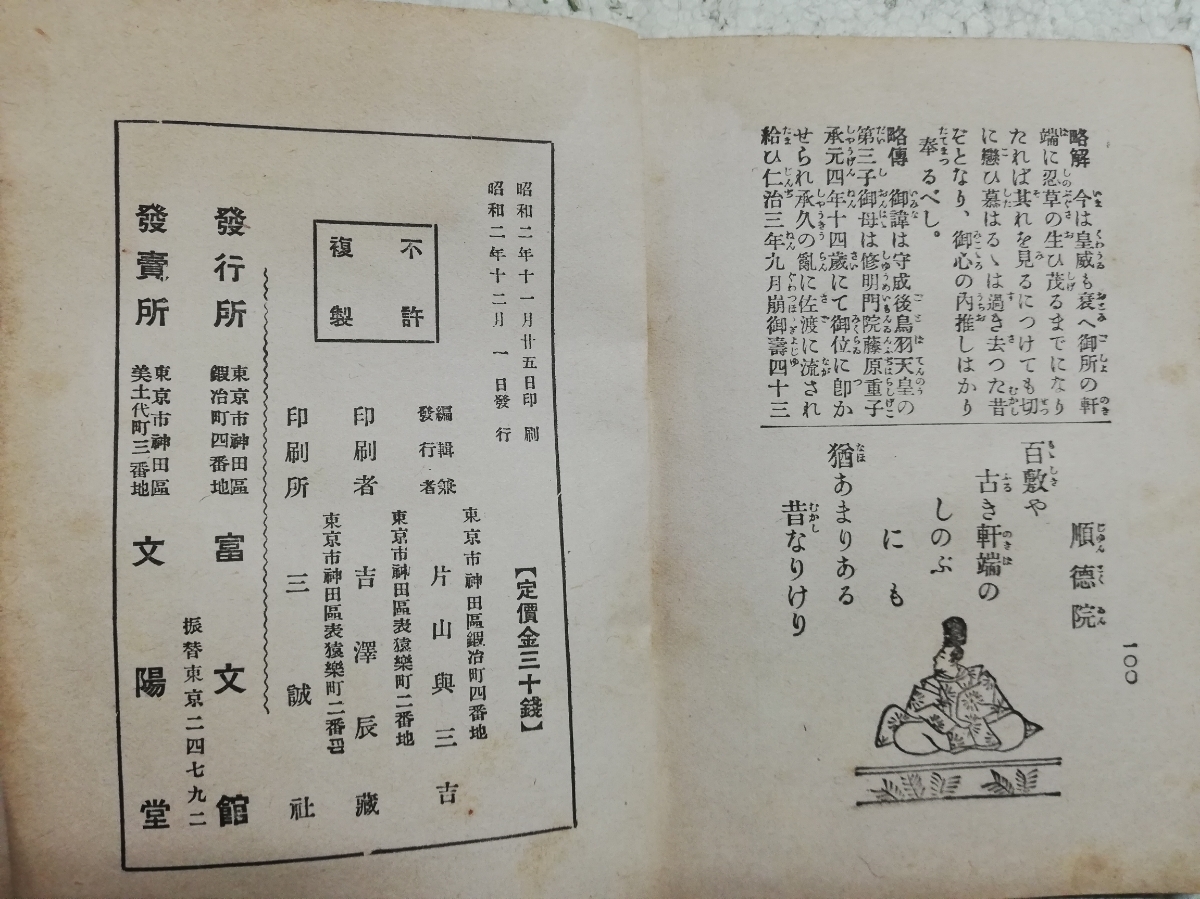 一〇〇
略解 今は皇威も衰へ御所の軒
端に忍草の生ひ茂るまでになり
たれば其れを見るにつけても切
に戀ひ慕はるゝは過き去つた昔
ぞとなり、御心の內推しはかり
奉るべし。
略傳 御諱は守成後鳥羽天皇の
第三子御母は修明門院藤原重子
承元四年十四歲にて御位に卽か
せられ承久の亂に佐渡に流され
給ひ仁治三年九月崩御壽四十三
順德院
百敷や
古き軒端の
しのぶ
にも
猶あまりある
昔なりけり
昭和二年十一月廿五日印刷
昭和二年十二月一日發行
不許
複製
【定價金三十錢】
東京市神田區鍜冶町四番地
編輯兼
發行者
片山與三吉
東京市神田區表猿樂町二番地
印刷者 吉澤辰藏
東京市神田區表猿樂町二番地
印刷所 三誠社
發行所
東京市神田區
鍜冶町四番地
富文館
振替東京二四七九二
發賣所
東京市神田區
美土代町三番地
文陽堂